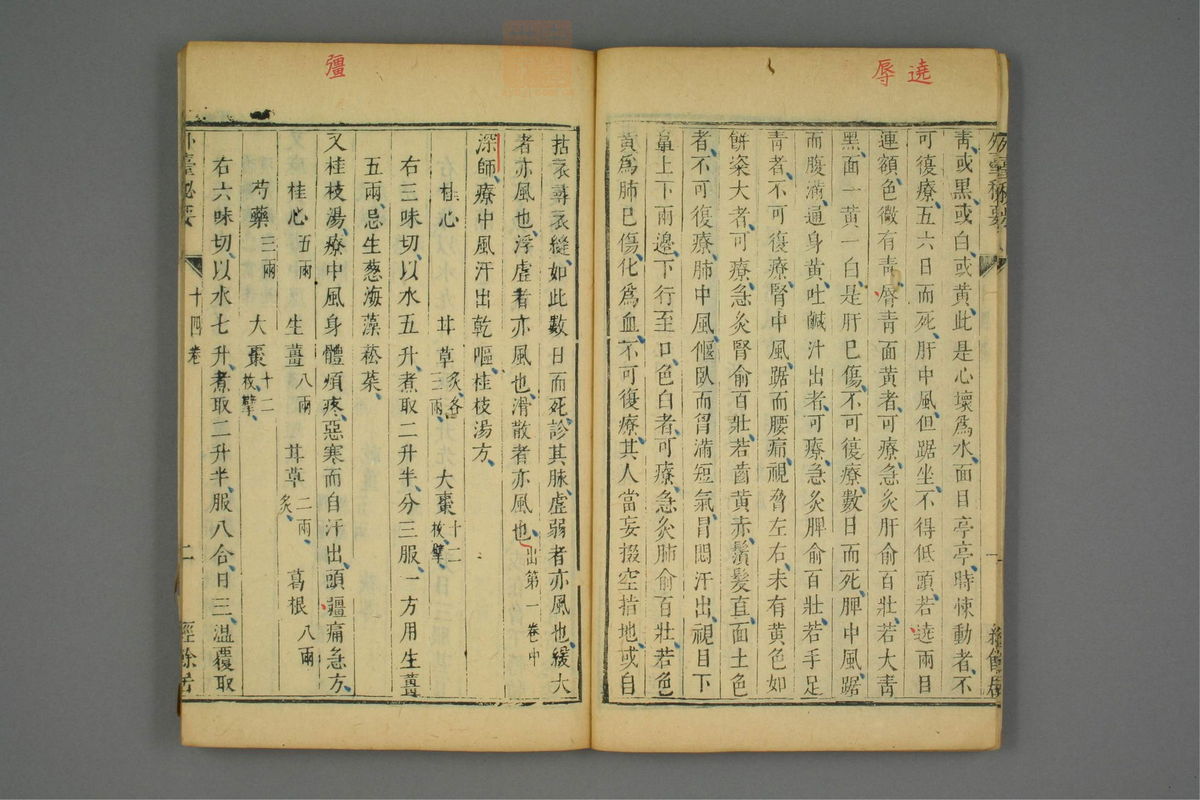 遶
辱
青或黑或白或黄此是心壞爲水面目亭亭時悚動者不
可復療五六日而死肝中風但踞坐不得低頭若遶兩目
連額色微有青脣青面黄者可療急灸肝俞百壯若大青
黑面一黄一白是肝已傷不可復療數日而死脾中風踞
而腹滿通身黄吐鹹汁出者可療急灸脾俞百壯若手足
青者不可復療腎中風踞而腰痛視脅左右未有黄色如
餅粢大者可療急灸腎俞百壯若齒黄赤鬢髮直面土色
者不可復療肺中風偃臥而胷滿短氣冒悶汗出視目下
鼻上下兩邊下行至口色白者可療急灸肺俞百壯若色
黄爲肺已傷化爲血不可復療其人當妄掇空指地或自
拈衣尋衣縫如此數日而死診其脉虛弱者亦風也緩大
者亦風也浮虛者亦風也滑散者亦風也出第一卷中
深師療中風汗出乾嘔桂枝湯方
桂心 甘草炙各三兩 大棗十二枚擘
右三味切以水五升煮取二升半分三服一方用生薑
五兩忌生葱海藻菘菜
又桂枝湯療中風身體煩疼惡寒而自汗出頭疆痛急方
桂心五兩 生薑八兩 甘草二兩炙 葛根八兩
芍藥三兩 大棗十二枚擘
右六味切以水七升煮取二升半服八合日三温覆取
外臺秘要 十四卷 二 經餘居
彊